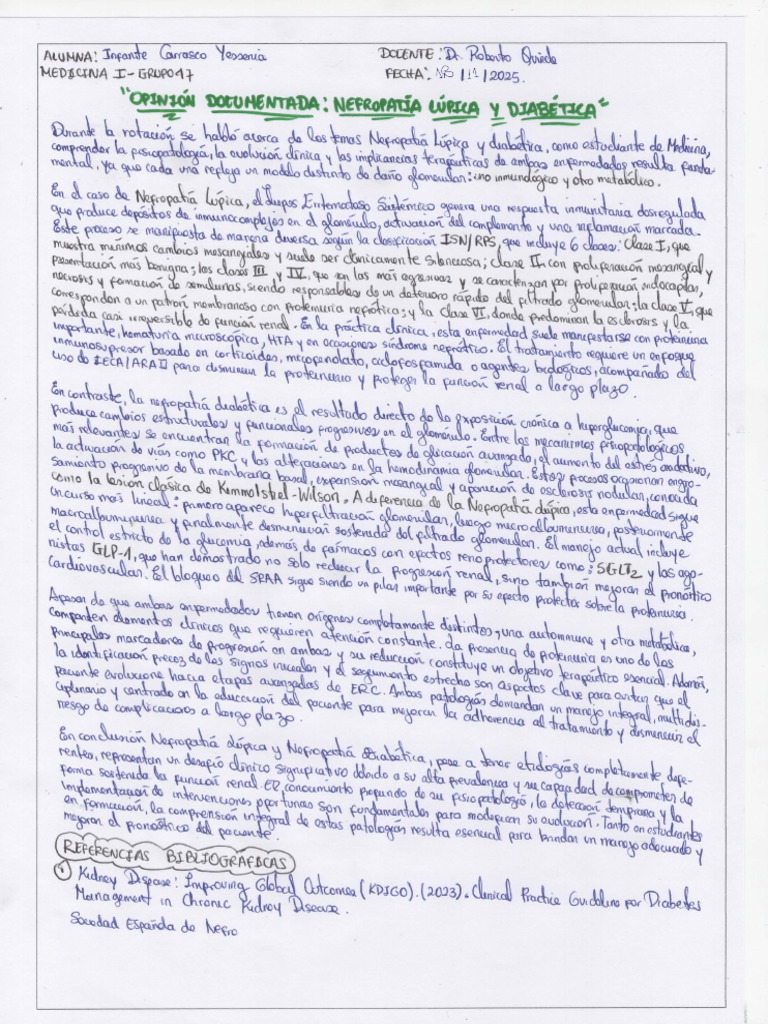 ALUMNA: Infante Carrasco Yessenia DOCENTE: Dr. Roberto
MEDICINA I - GRUPO 47 FECHA: /11/2025.
"OPINIÓN DOCUMENTADA: NEFROPATÍA LÚPICA Y DIABÉTICA"
Durante la rotación se habló acerca de los temas Nefropatía Lúpica y diabética, como estudiante de Medicina,
comprender la fisiopatología, la evolución clínica y las implicancias terapeuticas de ambas enfermedades resulta funda-
mental, ya que cada una refleja un modelo distinto de daño glomerular: uno inmunológico y otro metabólico.
En el caso de Nefropatía Lúpica, el Lupus Eritematoso Sistémico genera una respuesta inmunitaria desregulada
que produce depósitos de inmunocomplejos en el glomérulo, activación del complemento y una inflamación marcada.
Este proceso se manifiesta de manera diversa según la clasificación ISN/RPS, que incluye 6 clases: Clase I, que
muestra mínimos cambios mesangiales y suele ser clínicamente silenciosa; clase II con proliferación mesangial y
presentación más benigna; las clases III y IV, que son las más agresivas y se caracterizan por proliferación endocapilar,
necrosis y formación de semilunas, siendo responsables de un deterioro rápido del filtrado glomerular; la clase V, que
corresponden a un patrón membranoso con proteinuria nefrótica; y la clase VI, donde predominan la esclerosis y la
pérdida casi irreversible de función renal. En la práctica clínica, esta enfermedad suele manifestarse con proteinuria
importante, hematuria microscópica, HTA y en ocasiones síndrome nefrótico. El tratamiento requiere un enfoque
inmunosupresor basado en corticoides, micofenolato, ciclofosfamida o agentes biológicos, acompañado del
uso de IECA/ARA II para disminuir la proteinuria y proteger la función renal a largo plazo.
En contraste, la nefropatía diabética es el resultado directo de la exposición crónica a hiperglucemia, que
produce cambios estructurales y funcionales progresivos en el glomérulo. Entre los mecanismos fisiopatológicos
más relevantes se encuentran la formación de productos de glicación avanzada, el aumento del estrés oxidativo,
la activación de vías como PKC y las alteraciones en la hemodinamia glomerular. Estos procesos ocasionan engro-
samiento progresivo de la membrana basal, expansión mesangial y aparición de esclerosis nodular, conocida
como la lesión clásica de Kimmelstiel-Wilson. A diferencia de la Nefropatía lúpica, esta enfermedad sigue
un curso más lineal: primero aparece hiperfiltración glomerular, luego microalbuminuria, posteriormente
macroalbuminuria y finalmente disminución sostenida del filtrado glomerular. El manejo actual incluye
el control estricto de la glucemia, además de fármacos con efectos renoprotectores como: SGLT2 y los ago-
nistas GLP-1, que han demostrado no solo reducir la progresión renal, sino también mejorar el pronóstico
cardiovascular. El bloqueo del SRAA sigue siendo un pilar importante por su efecto protector sobre la proteinuria.
Apesar de que ambas enfermedades tienen orígenes completamente distintos, una autoinmune y otra metabólica,
comparten elementos clínicos que requieren atención constante. La presencia de proteinuria es uno de los
principales marcadores de progresión en ambas y su reducción constituye un objetivo terapéutico esencial. Además,
la identificación precoz de los signos iniciales y el seguimiento estrecho son aspectos clave para evitar que el
paciente evolucione hacia etapas avanzadas de ERC. Ambas patologías demandan un manejo integral, multidis-
ciplinario y centrado en la educación del paciente para mejorar la adherencia al tratamiento y disminuir el
riesgo de complicaciones a largo plazo.
En conclusión Nefropatía Lúpica y Nefropatía Diabética, pese a tener etiologías completamente dife-
rentes, representan un desafío clínico significativo debido a su alta prevalencia y su capacidad de comprometer de
forma sostenida la función renal. El conocimiento profundo de su fisiopatología, la detección temprana y la
implementación de intervenciones oportunas son fundamentales para modificar su evolución. Tanto en estudiantes
en formación, la comprensión integral de estas patologías resulta esencial para brindar un manejo adecuado y
mejorar el pronóstico del paciente.
REFERENCIAS BIBLIOGRÁFICAS
Kidney Disease: Improving Global Outcomes (KDIGO). (2023). Clinical Practice Guideline for Diabetes
Management in Chronic Kidney Disease.
Sociedad Española de Nefro